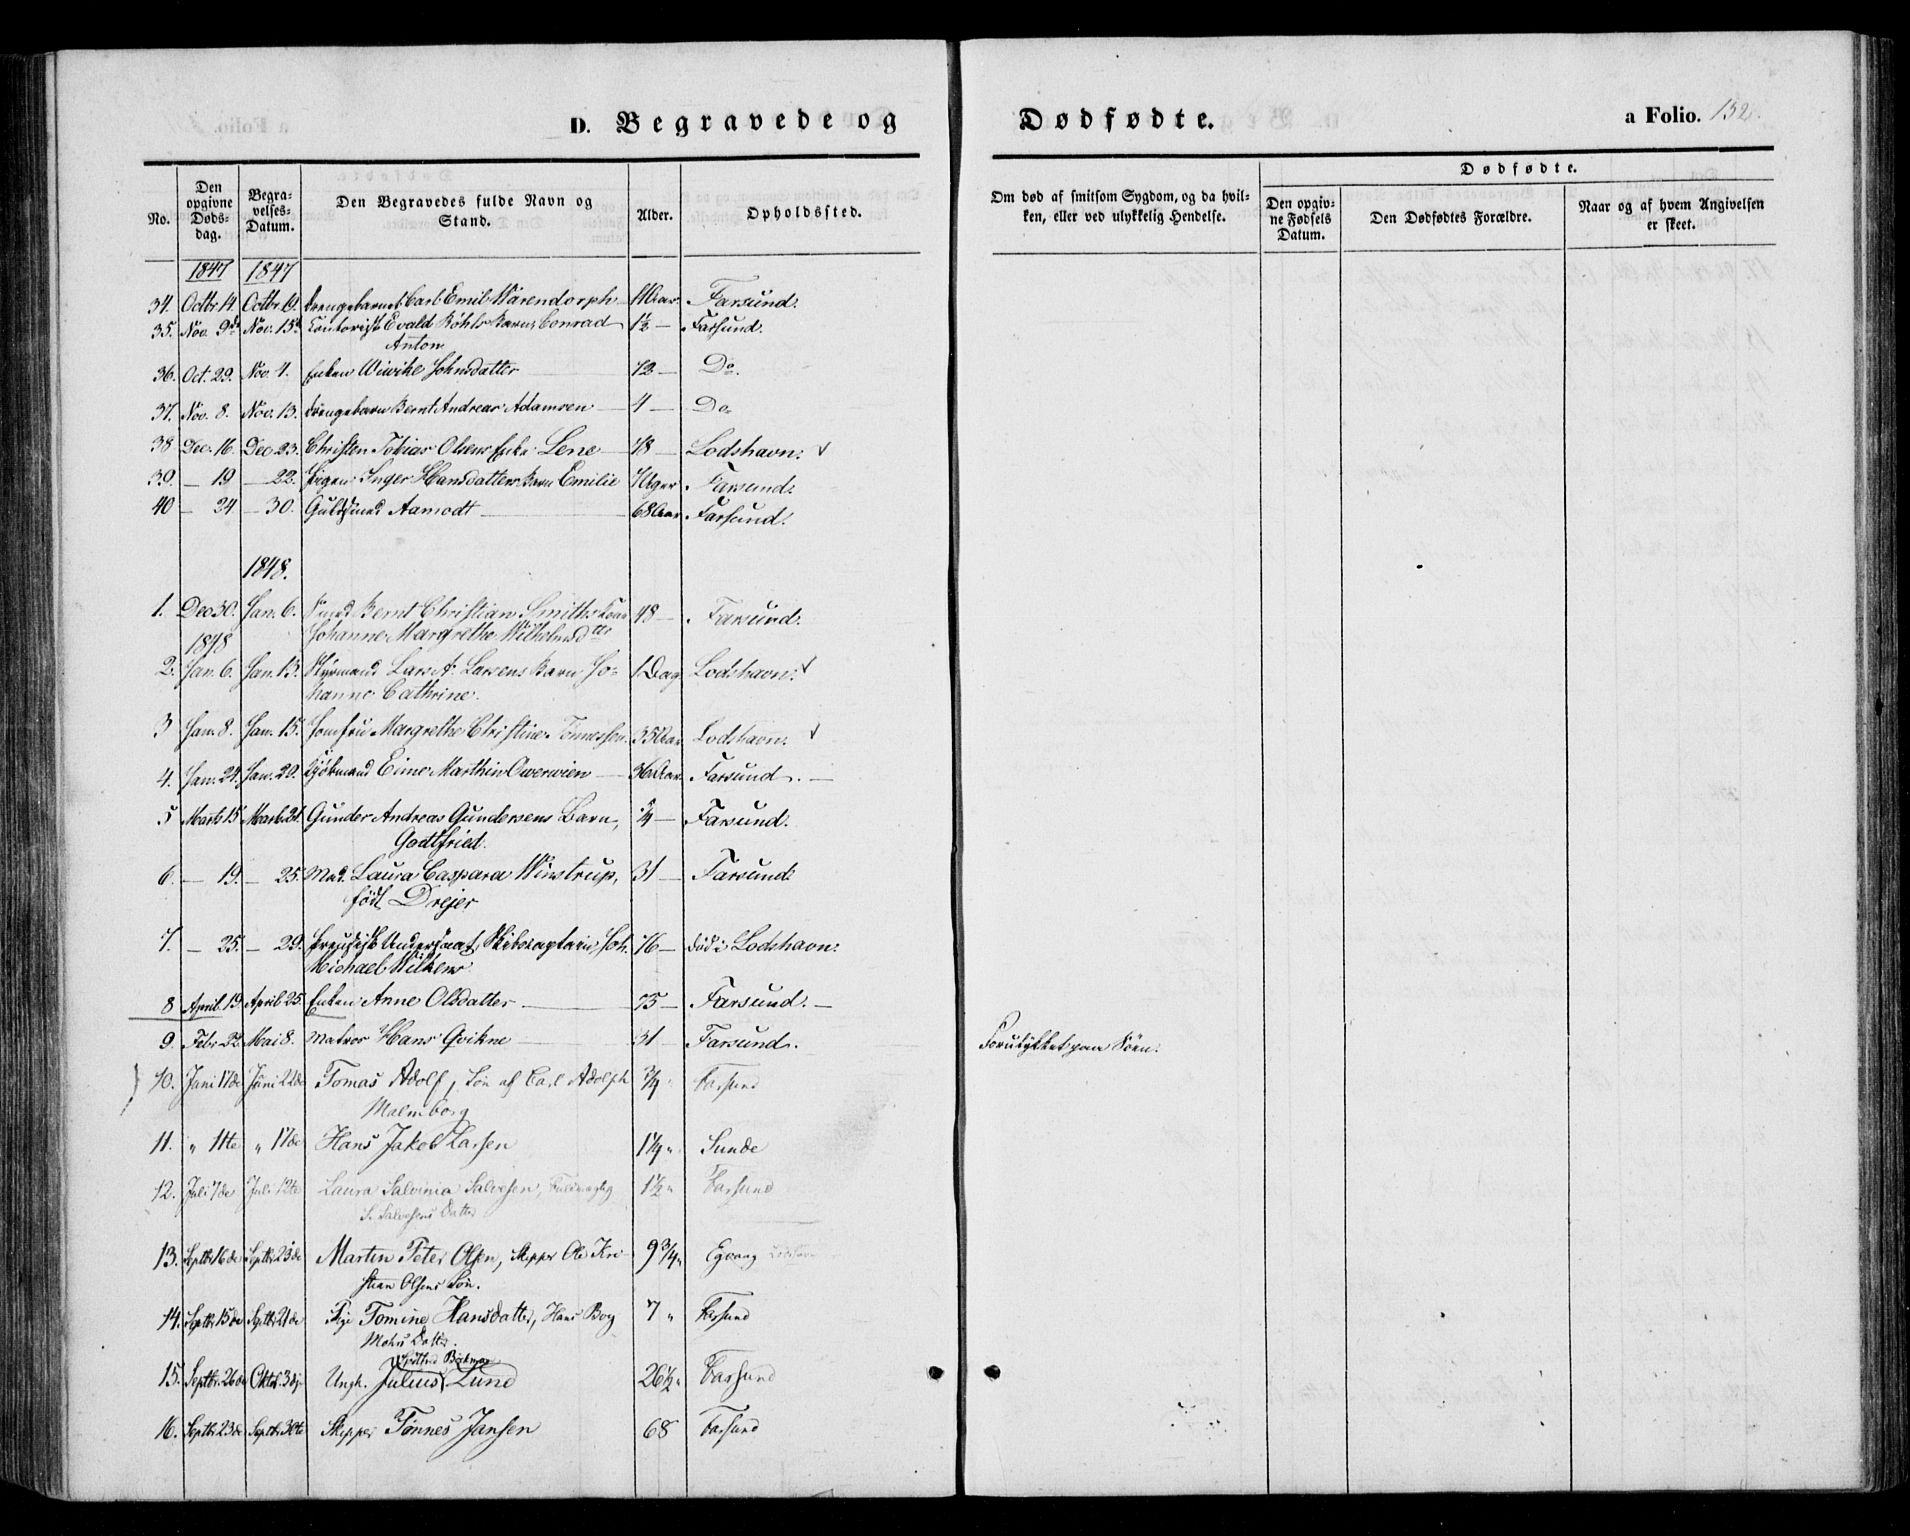 D. Begravede og Dødfødte. a Folio. 132.
No. Den opgivne Døds-dag. Begra-velses-Datum. Den Begravedes fulde Navn og Stand. Alder. Opholdssted. Om død af smitsom Sygdom, og da hvil-ken, eller ved ulykkelig Hendelse. Dødfødte. Den opgiv-ne Fødsels Datum. Den Dødfødtes Forældre. Naar og af hvem Angivelsen er skeet.
1847 1847
34. Octbr. 14. Octbr. 19. Drengebarnet Carl Emil Warendorph Aar. Farsund.
35. Nov. 9de Nov. 15de Contorist Evald Röhls Barn, Conrad 1½ — Farsund.
Anton
36. Oct. 29. Nov. 4. Enken Wivike Johnsdatter 72 — Do.
37. Nov. 8. Nov. 13. Drengebarn Bernt Andreas Adamsen — 4 — Do
38 Dec. 16. Dec. 23. Christen Tobias Olsens Enke Lene 48 — Lodshavn:
39. — 19 — 22. Pigen Inger Hansdatters Barn Emilie 7 Uger Farsund:
40 — 24 — 30. Aamodt — 68 Aar. Farsund.
1848.
1. Dec 30. Jan. 6. Bernt Christian Smiths Kone 48 — Farsund.
Johanne Margrethe Wilhelmsdtr
1848
2. Jan. 6. Jan. 13. Styrmand Lars A. Larsens Barn Jo- 1 Dag Lodshavn:
hanne Cathrine.
3 Jan. 8. Jan. 15. Jomfru Margrethe Christine Tönnessen 35 Aar Lodshavn:
4. Jan. 24. Jan. 29. Kjøbmand Eime Marthin Owerwien — 36 Aar. Farsund. —
5 Marts 15 Marts 21. Gunder Andreas Gundersens Barn, ¾ — Farsund.
Godtfried.
6. — 19. — 25. Mad. Laura Caspara Winstrup, 31 — Farsund
født Drejer
7. — 25. — 29. Preusisk Undersaat, Skibscaptain, Joh. 76 — død i Lodshavn:
Michael Wilkens
8 April. 19. April. 25. Enken Anne Olsdatter — 75 — Farsund. —
9. Febr. 22. Mai 8. Matros Hans Qvikne — 31 Farsund. Forulykket paa Söen.
10. Juni 17de Juni 22de Tomas Adolf, Søn af Carl Adolph ¾ " Farsund
Malmborg
11. " 11te " 17de Hans Jakob Larsen 1¼ " Sunde
12. Juli 7de Juli 12te Laura Salvinia Salvesen, Fuldmægtig 1½ " Farsund
S. Salvesens Datter
13. Septbr 16de Septbr 23de Martin Peter Olsen, Skipper Ole Kri- 9 ¾ " Egvaag
stian Olsens Søn.
14. Septbr 15de Septbr 21de Pige Tomine Hansdatter, Hans Borg 7 " Farsund
Mohrs Datter.
15. Septbr. 26de Oktob. 3die Ungk. Julius Lund 26½ " Farsund
16. Septbr 23de Septbr 30te Skipper Tønnes Jansen 68 Farsund